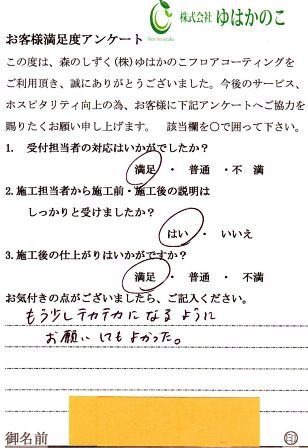 株式会社 ゆはかのこ
お客様満足度アンケート
この度は、森のしずく(株)ゆはかのこフロアコーティングを
ご利用頂き、誠にありがとうございました。今後のサービス、
ホスピタリティ向上の為、お客様に下記アンケートへご協力を
賜りたくお願い申し上げます。 該当欄を〇で囲って下さい。
1. 受付担当者の対応はいかがでしたか?
満足 ・ 普通 ・不 満
2.施工担当者から施工前・施工後の説明は
しっかりと受けましたか?
はい ・ いいえ
3.施工後の仕上がりはいかがですか?
満足 ・ 普通 ・ 不満
お気付きの点がございましたら、ご記入ください。
もう少しテカテカになるように
お願いしてもよかった。
御名前 ㊞